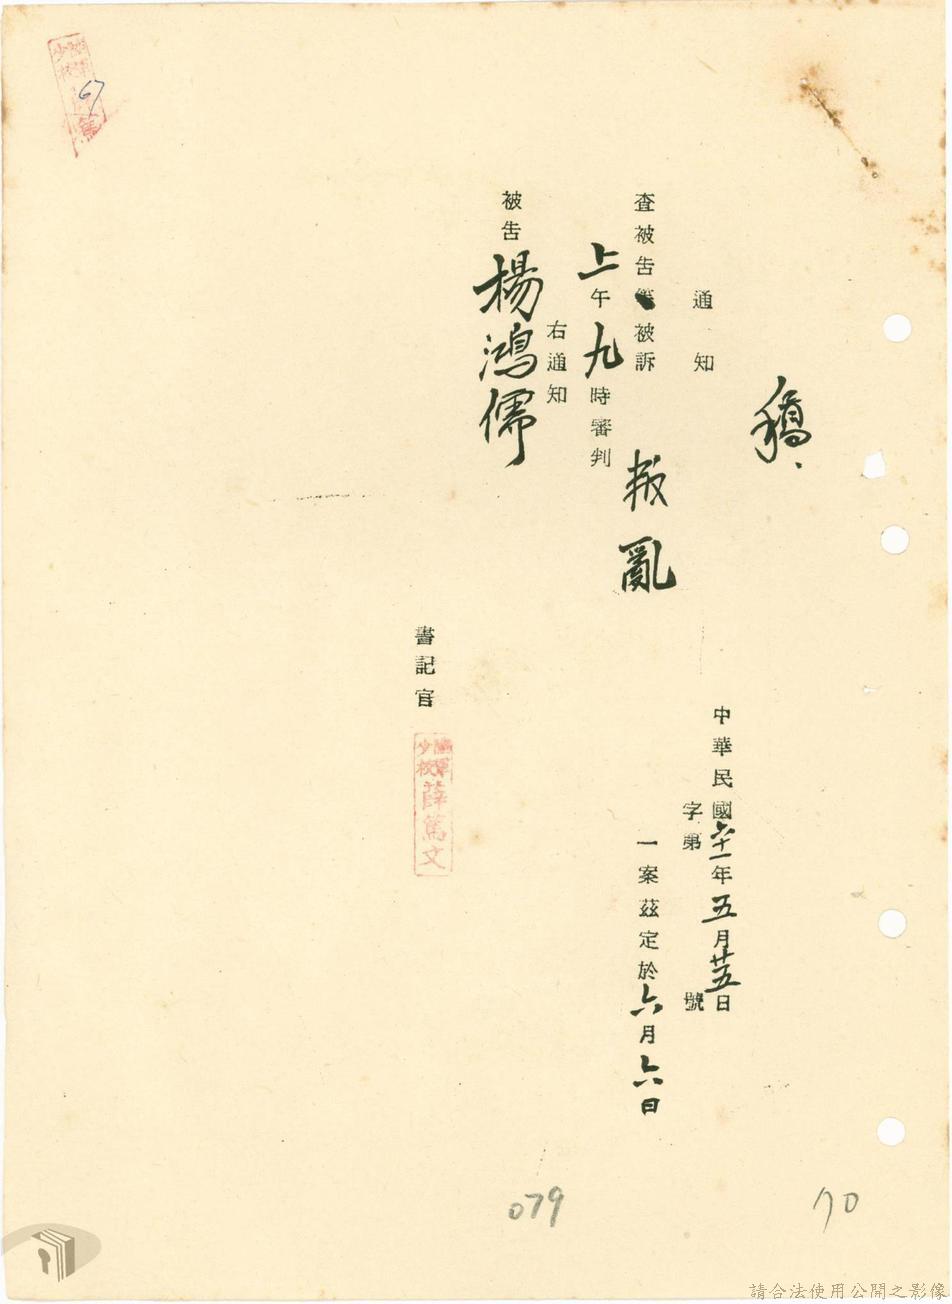 稿、
通知
中華民國六十一年五月廿五日
字第 號
查被告 被訴 叛亂 一案茲定於六月六日
上午九時審判
右通知
被告 楊鴻儒
書記官
陸軍少校 薛篤文
陸軍少校 篤
67
079
70
請合法使用公開之影像